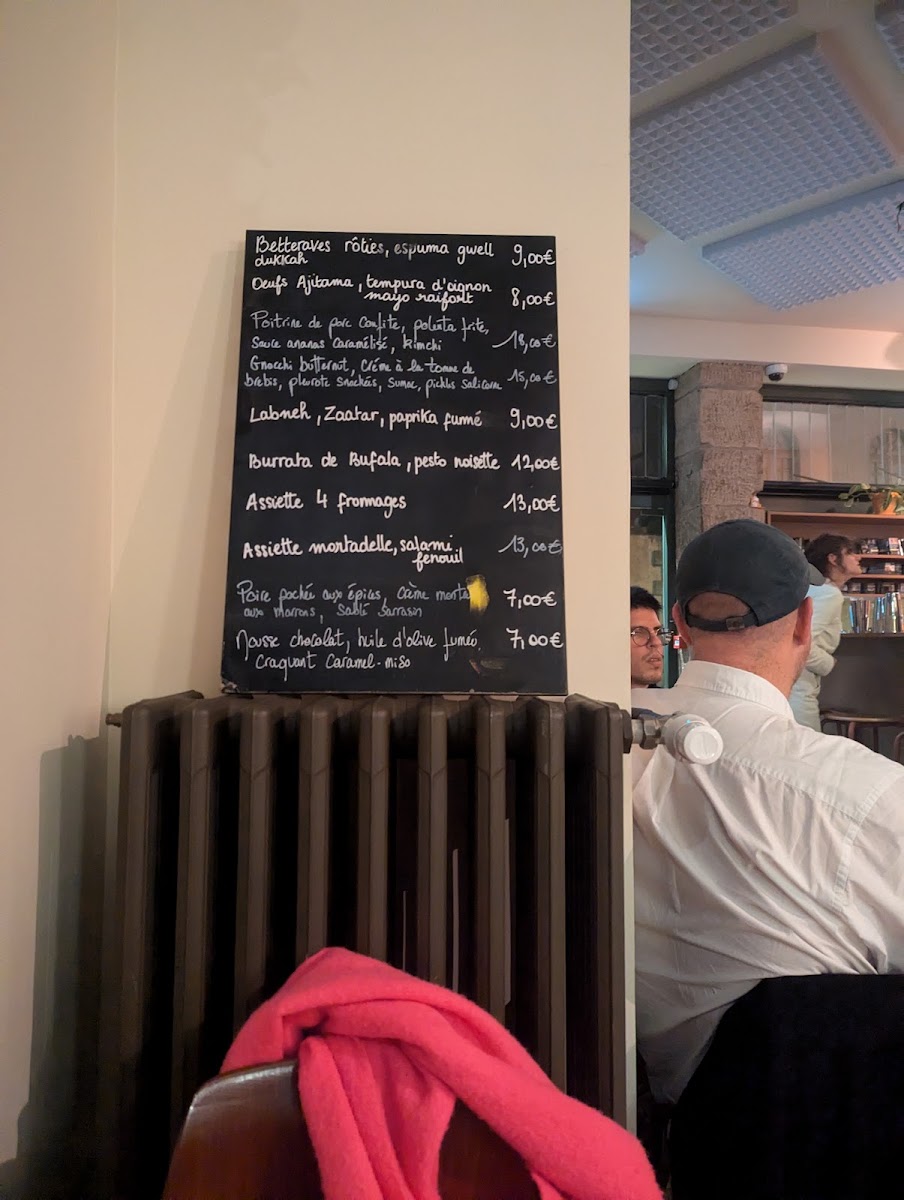 Betteraves rôties, espuma gwell 9,00€
dukkah
Oeufs Ajitama, tempura d'oignon
mayo raifort 8,00€
Poitrine de porc confite, polenta frite,
sauce ananas caramélisé, kimchi 18,00€
Gnocchi butternut, crème à la tomme de
brebis, pleurote snackés, sumac, pickles salicorne 15,00€
Labneh, Zaatar, paprika fumé 9,00€
Burrata de Bufala, pesto noisette 12,00€
Assiette 4 fromages 13,00€
Assiette mortadelle, salami 13,00€
fenouil
Poire pochée aux épices, crème 7,00€
aux marrons, sablé sarrasin
Mousse chocolat, huile d'olive fumée, 7,00€
Craquant Caramel-miso